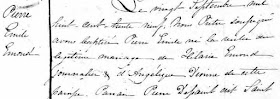 Pierre
Emile
Emond
Le vingt Septembre mil
huit cent trente neuf, Nous Prêtre soussigné
avons baptisé Pierre Emile né la veille du
légitime mariage de Hilaire Emond
Journalier & d'Angelique Dionne de cette
paroisse Parrain Pierre